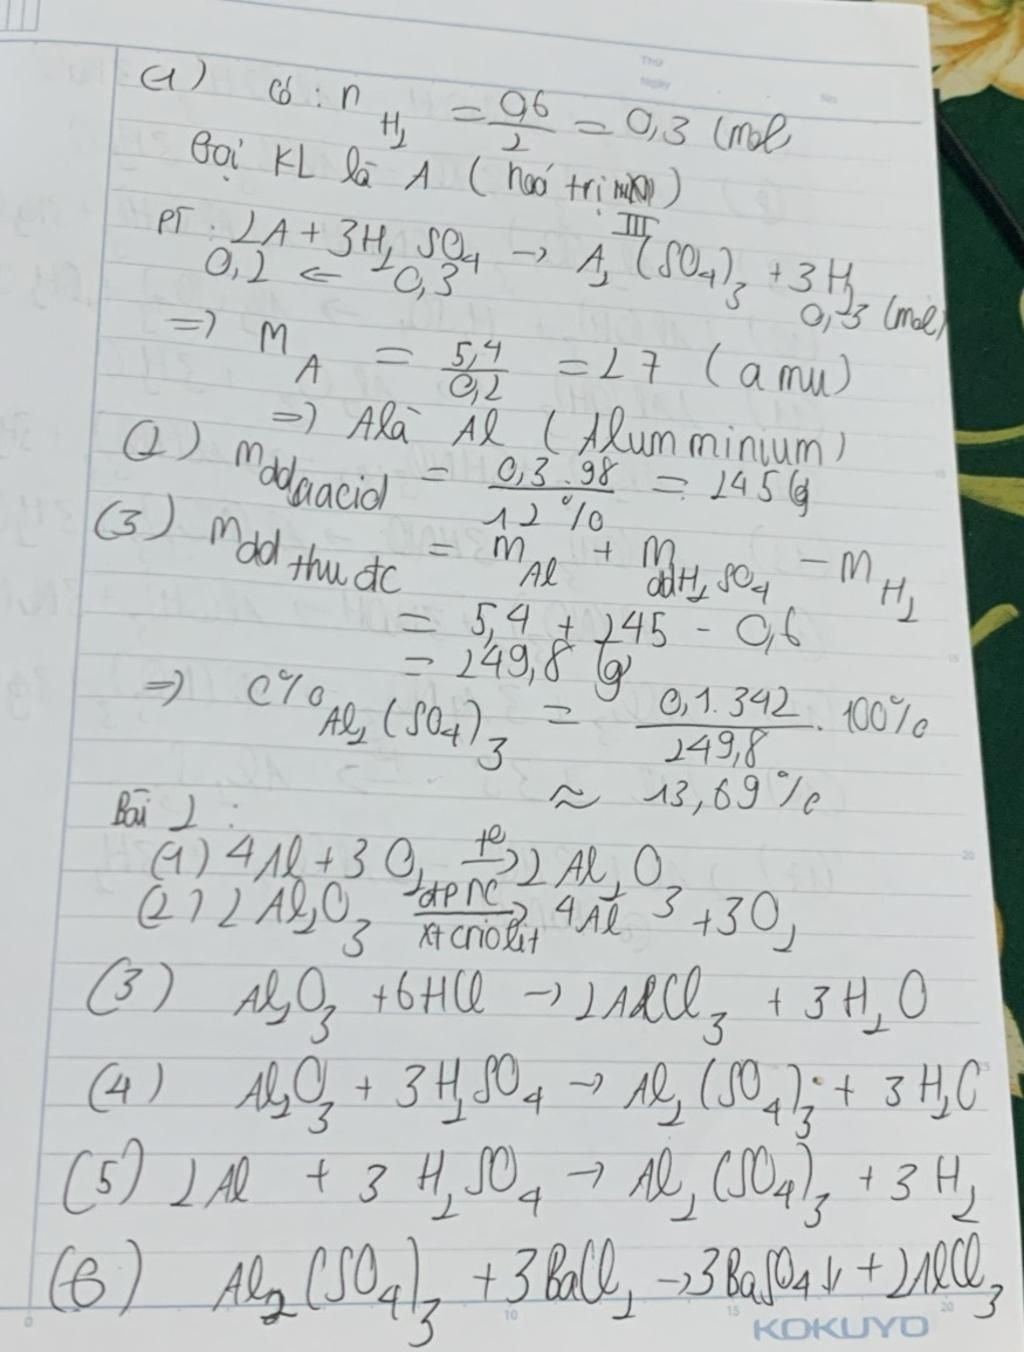 Thứ
Ngày
No.
(1) Có : n H₂ = 0,6/2 = 0,3 (mol)
Gọi KL là A (hoá trị III)
PT : 2A + 3H₂SO₄ → A₂(SO₄)₃ + 3H₂
0,2 ← 0,3 0,3 (mol)
=) M A = 5,4/0,2 = 27 (amu)
=) A là Al (Alumminium)
(2) m dd acid = 0,3.98/12% = 245 (g)
(3) m dd thu đc = m Al + m ddH₂SO₄ - m H₂
= 5,4 + 245 - 0,6
= 249,8 (g)
=) C% Al₂(SO₄)₃ = 0,1.342/249,8 . 100%
≈ 13,69%
Bài 2 :
(1) 4Al + 3O₂ t° → 2Al₂O₃
(2) 2Al₂O₃ đpnc → xt criolit 4Al + 3O₂
(3) Al₂O₃ + 6HCl → 2AlCl₃ + 3H₂O
(4) Al₂O₃ + 3H₂SO₄ → Al₂(SO₄)₃ + 3H₂O
(5) 2Al + 3H₂SO₄ → Al₂(SO₄)₃ + 3H₂
(6) Al₂(SO₄)₃ + 3BaCl₂ → 3BaSO₄↓ + 2AlCl₃
0 10 15 20
KOKUYO